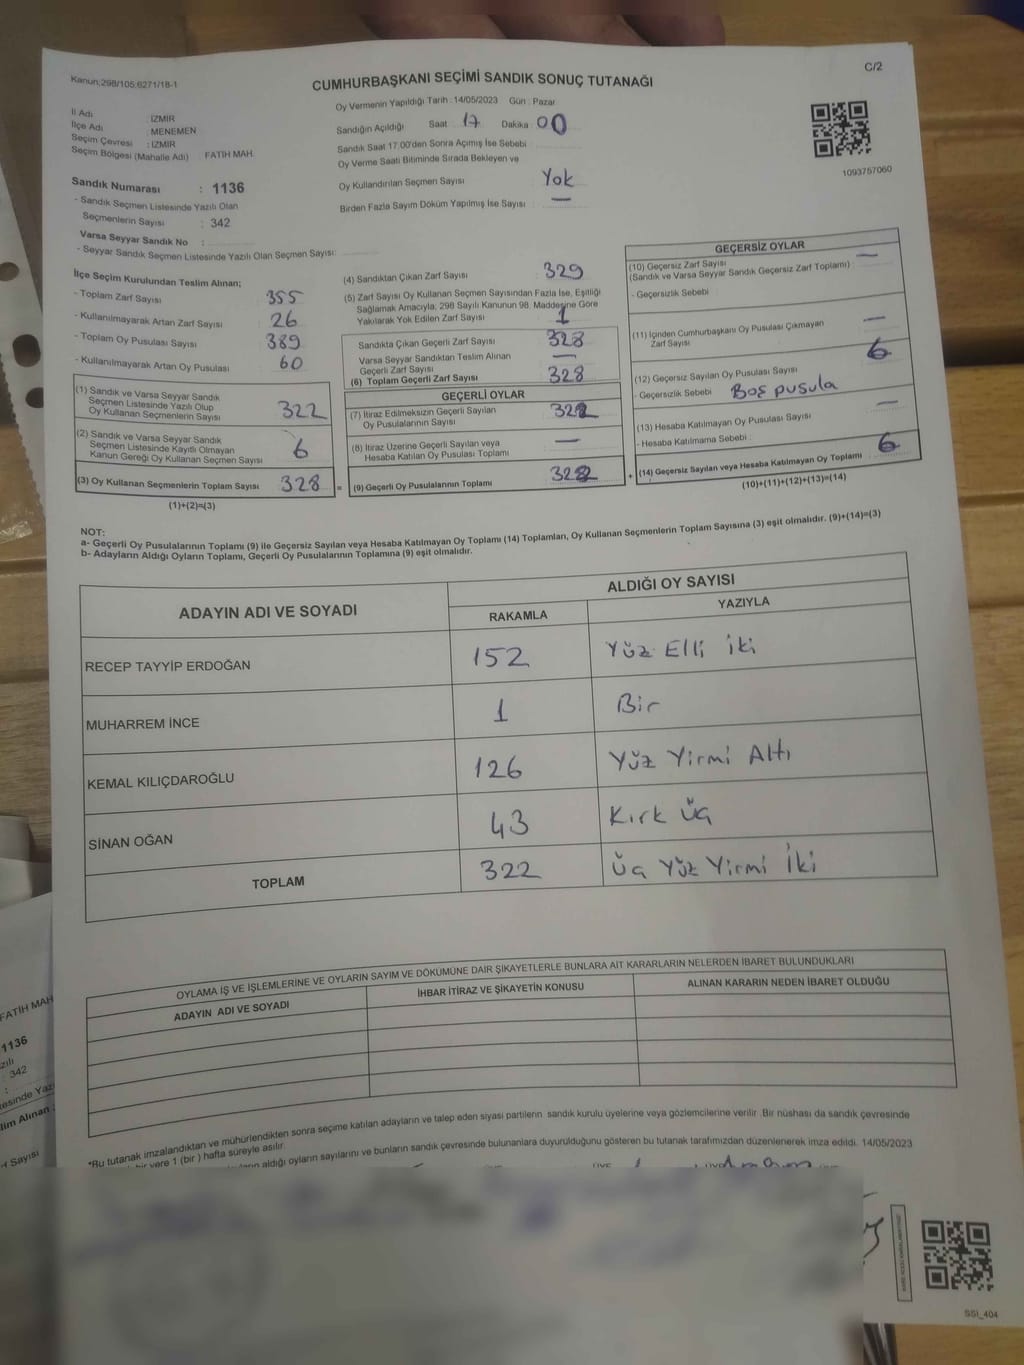 Kanun:298/105;6271/18-1
C/2
CUMHURBAŞKANI SEÇİMİ SANDIK SONUÇ TUTANAĞI
Oy Vermenin Yapıldığı Tarih : 14/05/2023 Gün : Pazar
İl Adı : İZMİR
İlçe Adı : MENEMEN
Seçim Çevresi : İZMİR
Seçim Bölgesi (Mahalle Adı) FATİH MAH.
Sandığın Açıldığı Saat 17 Dakika 00
Sandık Saat 17.00'den Sonra Açılmış İse Sebebi :
Oy Verme Saati Bitiminde Sırada Bekleyen ve
Oy Kullandırılan Seçmen Sayısı : Yok
Birden Fazla Sayım Döküm Yapılmış İse Sayısı : —
1093757060
Sandık Numarası : 1136
- Sandık Seçmen Listesinde Yazılı Olan
Seçmenlerin Sayısı : 342
Varsa Seyyar Sandık No :
- Seyyar Sandık Seçmen Listesinde Yazılı Olan Seçmen Sayısı:
İlçe Seçim Kurulundan Teslim Alınan;
- Toplam Zarf Sayısı : 355
- Kullanılmayarak Artan Zarf Sayısı : 26
- Toplam Oy Pusulası Sayısı : 389
- Kullanılmayarak Artan Oy Pusulası : 60
(1) Sandık ve Varsa Seyyar Sandık
Seçmen Listesinde Yazılı Olup
Oy Kullanan Seçmenlerin Sayısı 322
(2) Sandık ve Varsa Seyyar Sandık
Seçmen Listesinde Kayıtlı Olmayan
Kanun Gereği Oy Kullanan Seçmen Sayısı 6
(3) Oy Kullanan Seçmenlerin Toplam Sayısı 328 =
(1)+(2)=(3)
(4) Sandıktan Çıkan Zarf Sayısı : 329
(5) Zarf Sayısı Oy Kullanan Seçmen Sayısından Fazla İse, Eşitliği
Sağlamak Amacıyla, 298 Sayılı Kanunun 98. Maddesine Göre
Yakılarak Yok Edilen Zarf Sayısı : 1
Sandıkta Çıkan Geçerli Zarf Sayısı : 328
Varsa Seyyar Sandıktan Teslim Alınan
Geçerli Zarf Sayısı : —
(6) Toplam Geçerli Zarf Sayısı : 328
GEÇERLİ OYLAR
(7) İtiraz Edilmeksizin Geçerli Sayılan
Oy Pusulalarının Sayısı : 322
(8) İtiraz Üzerine Geçerli Sayılan veya
Hesaba Katılan Oy Pusulası Toplamı : —
(9) Geçerli Oy Pusulalarının Toplamı : 322 +
GEÇERSİZ OYLAR
(10) Geçersiz Zarf Sayısı
(Sandık ve Varsa Seyyar Sandık Geçersiz Zarf Toplamı) : —
- Geçersizlik Sebebi :
(11) İçinden Cumhurbaşkanı Oy Pusulası Çıkmayan
Zarf Sayısı : —
(12) Geçersiz Sayılan Oy Pusulası Sayısı : 6
- Geçersizlik Sebebi : Boş pusula
(13) Hesaba Katılmayan Oy Pusulası Sayısı : —
- Hesaba Katılmama Sebebi :
(14) Geçersiz Sayılan veya Hesaba Katılmayan Oy Toplamı : 6
(10)+(11)+(12)+(13)=(14)
NOT:
a- Geçerli Oy Pusulalarının Toplamı (9) ile Geçersiz Sayılan veya Hesaba Katılmayan Oy Toplamı (14) Toplamları, Oy Kullanan Seçmenlerin Toplam Sayısına (3) eşit olmalıdır. (9)+(14)=(3)
b- Adayların Aldığı Oyların Toplamı, Geçerli Oy Pusulalarının Toplamına (9) eşit olmalıdır.
ADAYIN ADI VE SOYADI
ALDIĞI OY SAYISI
RAKAMLA YAZIYLA
RECEP TAYYİP ERDOĞAN 152 Yüz Elli iki
MUHARREM İNCE 1 Bir
KEMAL KILIÇDAROĞLU 126 Yüz Yirmi Altı
SİNAN OĞAN 43 Kırk üç
TOPLAM 322 üç Yüz Yirmi İki
OYLAMA İŞ VE İŞLEMLERİNE VE OYLARIN SAYIM VE DÖKÜMÜNE DAİR ŞİKAYETLERLE BUNLARA AİT KARARLARIN NELERDEN İBARET BULUNDUKLARI
ADAYIN ADI VE SOYADI İHBAR İTİRAZ VE ŞİKAYETİN KONUSU ALINAN KARARIN NEDEN İBARET OLDUĞU
*Bu tutanak imzalandıktan ve mühürlendikten sonra seçime katılan adayların ve talep eden siyasi partilerin sandık kurulu üyelerine veya gözlemcilerine verilir. Bir nüshası da sandık çevresinde
yere 1 (bir) hafta süreyle asılır.
aldığı oyların sayılarını ve bunların sandık çevresinde bulunanlara duyurulduğunu gösteren bu tutanak tarafımızdan düzenlenerek imza edildi. 14/05/2023
FATİH MAH
1136
342
SSI_404